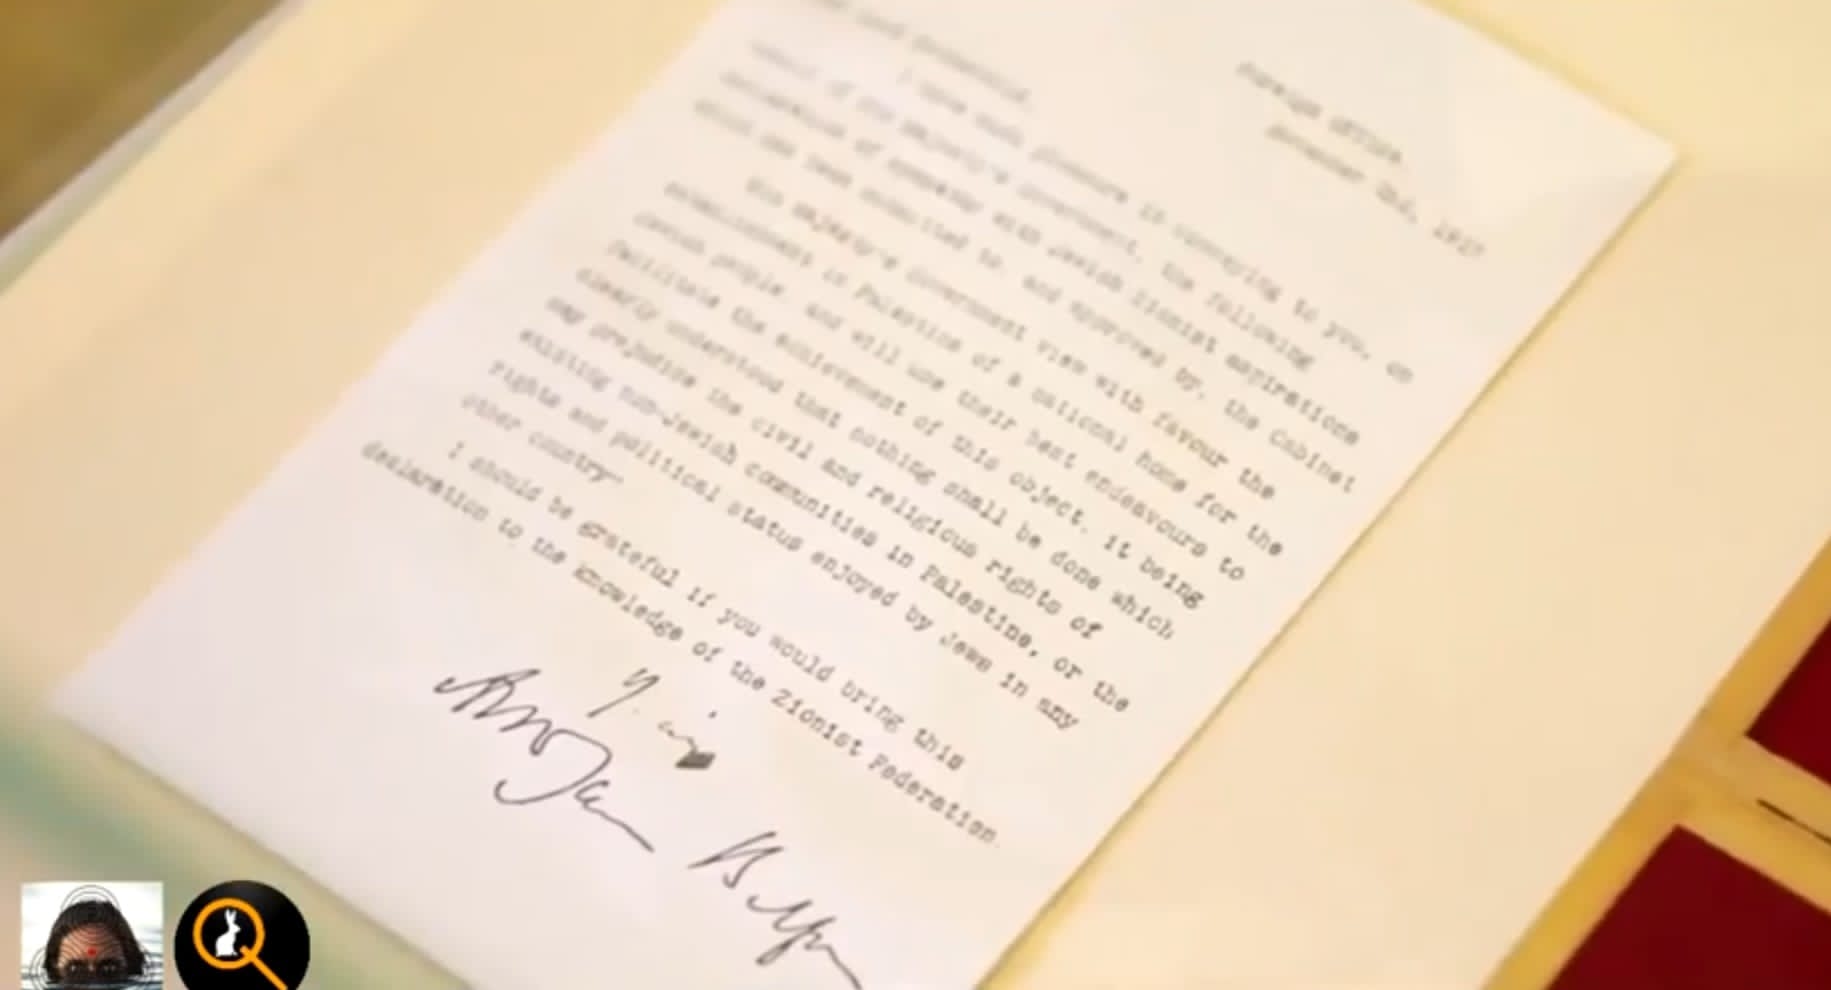 Foreign Office,
November 2nd, 1917
Lord Rothschild,
I have much pleasure in conveying to you, on
behalf of His Majesty's Government, the following
declaration of sympathy with Jewish Zionist aspirations
which has been submitted to, and approved by, the Cabinet
His Majesty's Government view with favour the
establishment in Palestine of a national home for the
Jewish people, and will use their best endeavours to
facilitate the achievement of this object, it being
clearly understood that nothing shall be done which
may prejudice the civil and religious rights of
existing non-Jewish communities in Palestine, or the
rights and political status enjoyed by Jews in any
other country"
I should be grateful if you would bring this
declaration to the knowledge of the Zionist Federation.